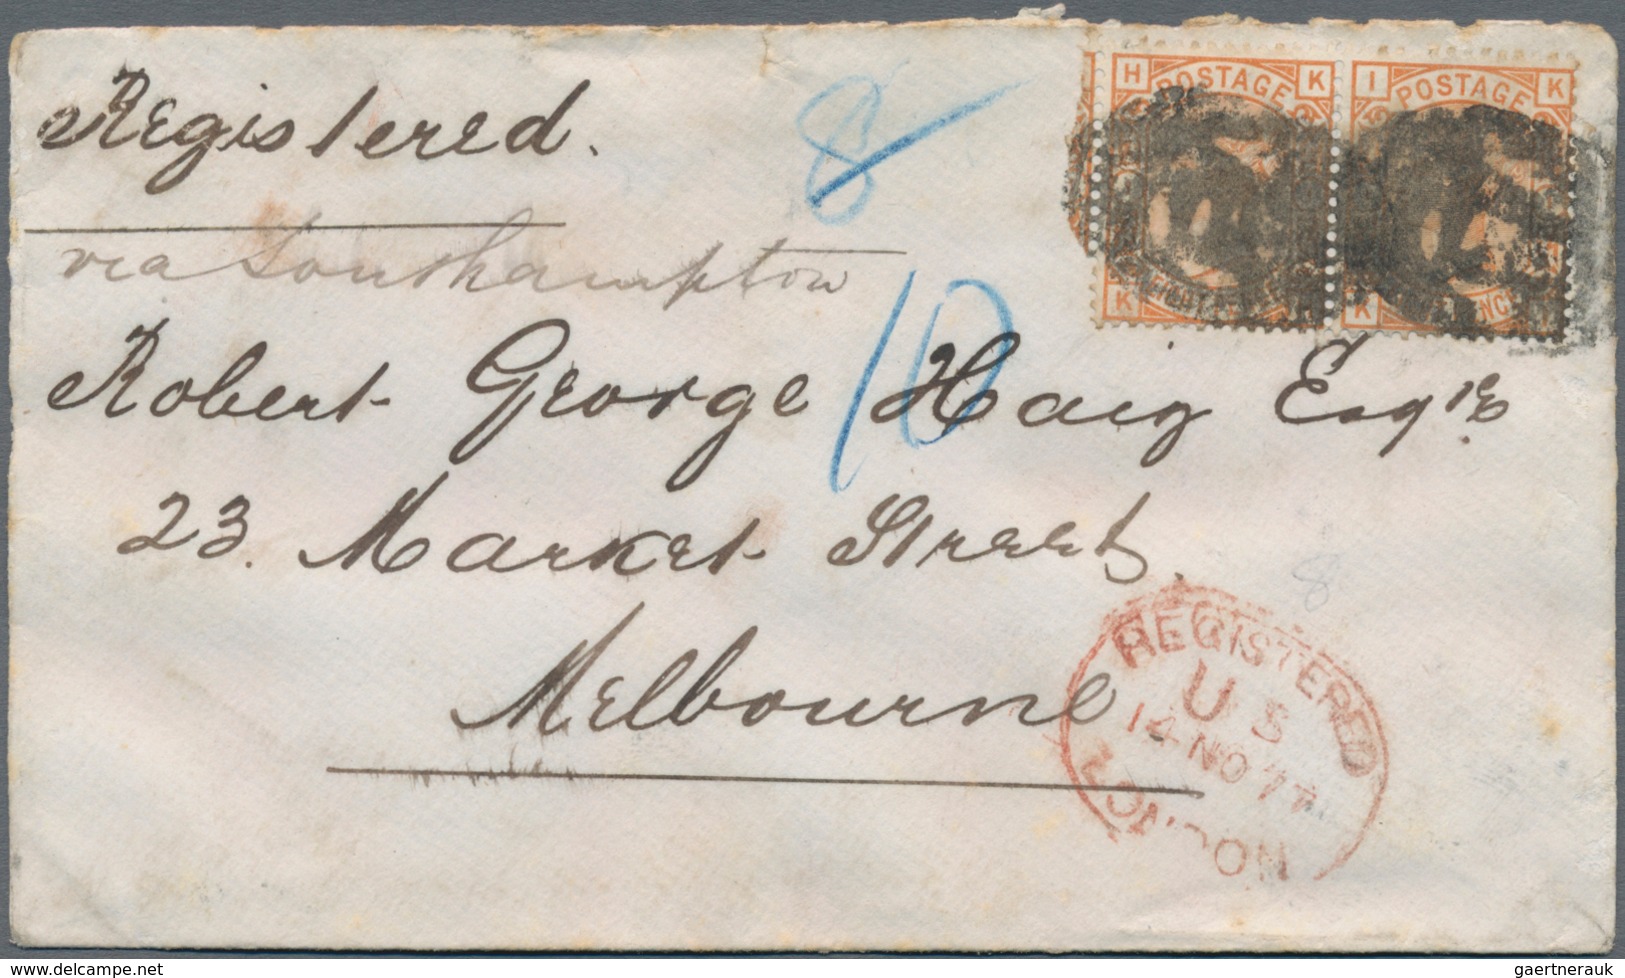 Registered.
via Southampton
8
10
H POSTAGE K
I POSTAGE K
K
K
Robert George Haig Esqre
23. Market Street,
Melbourne
8
REGISTERED
U S
14 NO 77
LONDON
www.delcampe.net
gaertnerauk